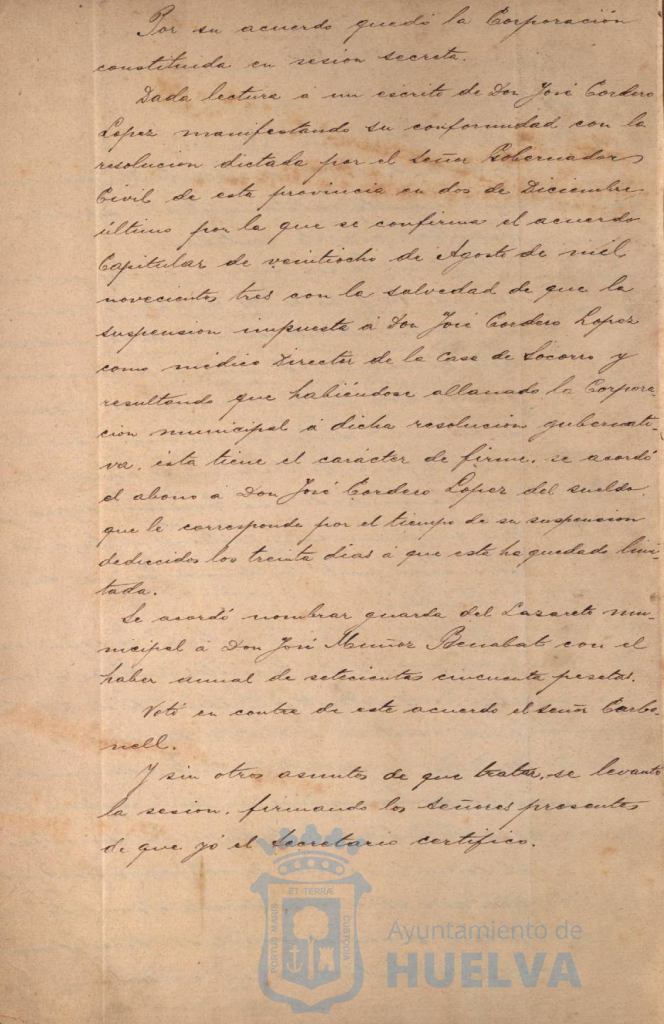 Por su acuerdo quedó la Corporación
constituida en sesion secreta.
Dada lectura á un escrito de Don José Cordero
Lopez manifestando su conformidad con la
resolucion dictada por el Señor Gobernador
Civil de esta provincia en dos de Diciembre
último por la que se confirma el acuerdo
Capitular de veintiocho de Agosto de mil
novecientos tres con la salvedad de que la
suspension impuesta á Don José Cordero Lopez
como médico Director de la Casa de Socorro y
resultando que habiéndose allanado la Corpora-
cion municipal á dicha resolucion gubernati-
va, ésta tiene el carácter de firme, se acordó
el abono á Don José Cordero Lopez del sueldo
que le corresponda por el tiempo de su suspension
deducidos los treinta dias á que esta ha quedado limi-
tada.
Se acordó nombrar guarda del Lazareto mu-
nicipal á Don José Muñoz Benabat con el
haber anual de setecientas cincuenta pesetas.
Votó en contra de este acuerdo el señor Carbo-
nell.
Y sin otros asuntos de que tratar, se levantó
la sesion, firmando los Señores presentes
de que yó el Secretario certifico.
PORTUS MARIS
ET TERRÆ
CUSTODIA
Ayuntamiento de
HUELVA